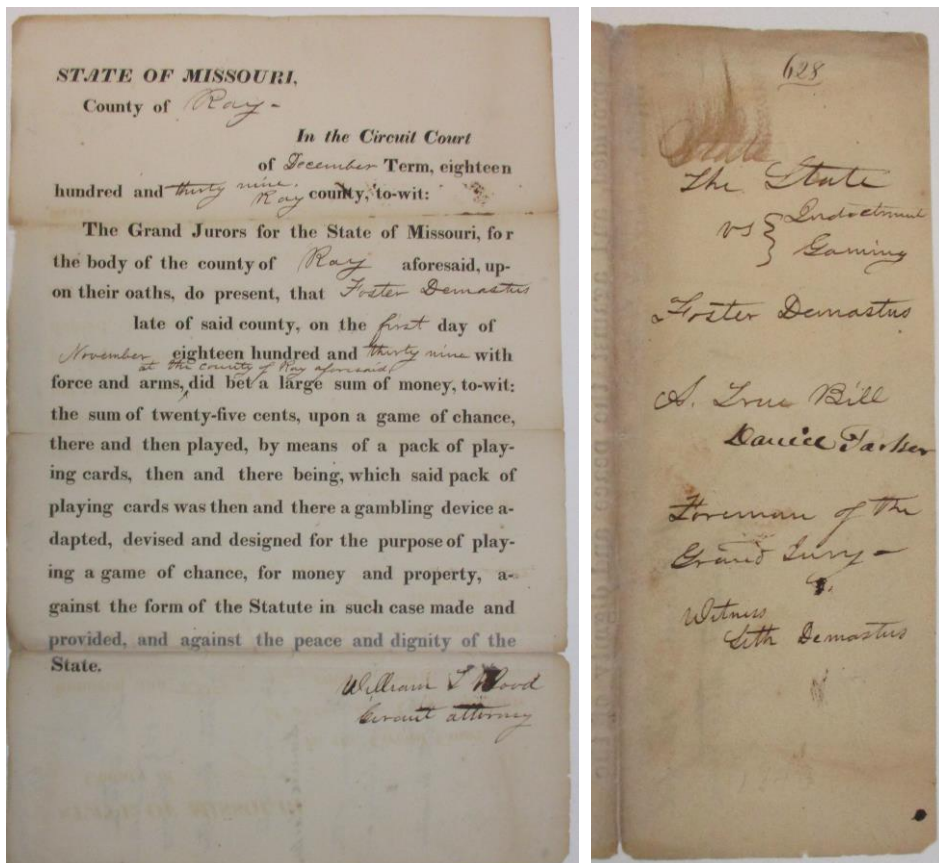 STATE OF MISSOURI,
County of Ray -
In the Circuit Court
of December Term, eighteen
hundred and thirty nine.
Ray county, to-wit:
The Grand Jurors for the State of Missouri, for
the body of the county of Ray aforesaid, up-
on their oaths, do present, that Foster Demastus
late of said county, on the first day of
November eighteen hundred and thirty nine with
at the county of Ray aforesaid
force and arms, did bet a large sum of money, to-wit:
the sum of twenty-five cents, upon a game of chance,
there and then played, by means of a pack of play-
ing cards, then and there being, which said pack of
playing cards was then and there a gambling device a-
dapted, devised and designed for the purpose of play-
ing a game of chance, for money and property, a-
gainst the form of the Statute in such case made and
provided, and against the peace and dignity of the
State.
William T Wood
Circuit attorney
628
State
The State
vs } Indictment
Gaming
Foster Demastus
A. True Bill
Foreman of the
Grand Jury -
Witness
Seth Demastus